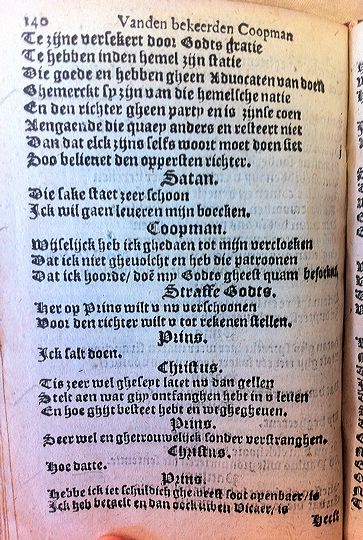 140 Vanden bekeerden Coopman
Te zijne versekert door Godts gratie
Te hebben inden hemel zijn statie
Die goede en hebben gheen Advocaten van doen
Ghemerckt sy zijn van die hemelsche natie
En den richter gheen party en is zijnse coen
Aengaende die quaey anders en resteert niet
Dan dat elck zijns selfs woort moet doen siet
Soo believet den oppersten richter.
Satan.
Die sake staet zeer schoon
Ick wil gaen leveren mijn boecken.
Coopman.
Wijselijck heb ick ghedaen tot mijn vercloecken
Dat ick niet ghevolcht en heb die patroonen
Dat ick hoorde/ doẽ my Godts gheest quam besoecken
Straffe Godts.
Her op Prins wilt v nv verschoonen
Voor den richter wilt v tot rekenen stellen.
Prins.
Ick salt doen.
Christus.
Tis zeer wel gheseyt latet nv dan gellen
Stelt aen wat ghy ontfanghen hebt in v leven
En hoe ghijt besteet hebt en wegghegheven.
Prins.
Seer wel en ghetrouwelijck sonder verstranghen.
Christus.
Hoe datte.
Prins.
Hebbe ick iet schuldich gheweest soot openbaer/ is
Ick heb betaelt en dan oock uwen Vicker/ is
Heeft